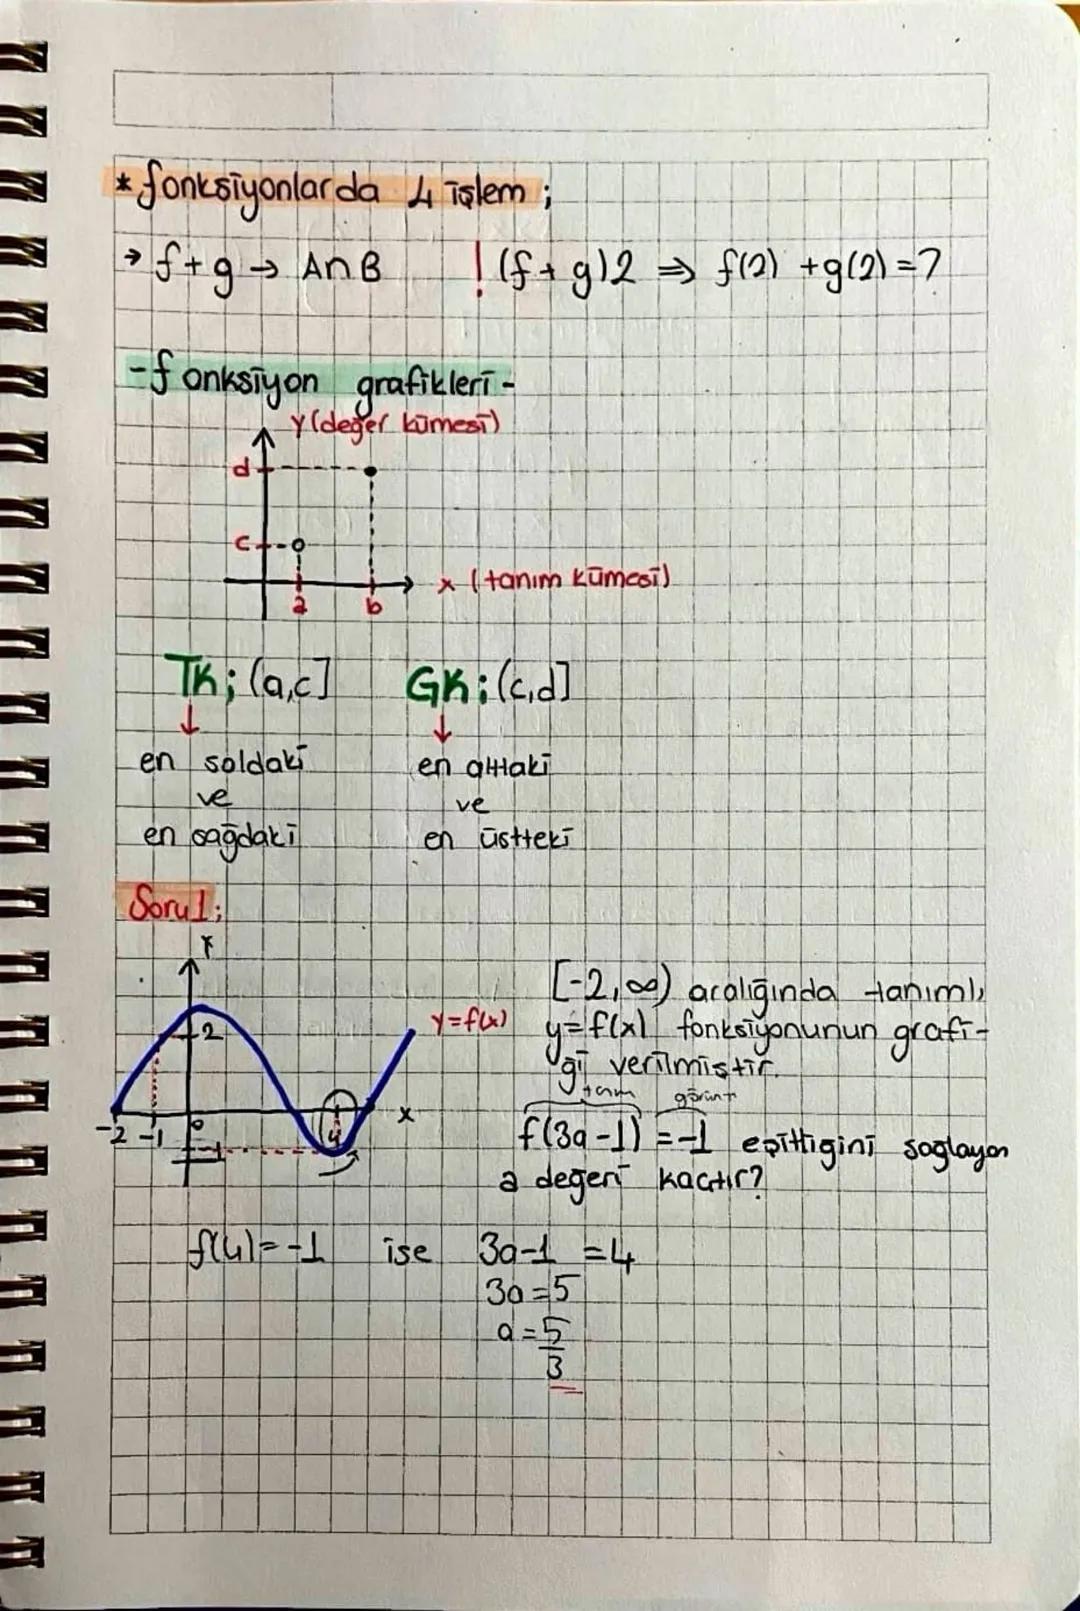 * fonksiyonlarda 4 işlem ;
→ f+g → A∩B ! (f+g)2 ⇒ f(2) +g(2)=?
-fonksiyon grafikleri-
y(değer kümesi)
d
c
x (tanım kümesi)
a b
TK; (a,c] GK; (c,d]
↓ ↓
en soldaki en alttaki
ve ve
en sağdaki en üstteki
Soru1;
Y
[-2,∞) aralığında tanımlı,
2 y=f(x) y=f(x) fonksiyonunun grafi-
ği verilmiştir.
tanım görünt
-2 -1 0 4 x f(3a-1) =-1 eşittiğini sağlayan
-1
a değeri kaçtır?
f(4)=-1 ise 3a-1 =4
3a=5
a=5
3